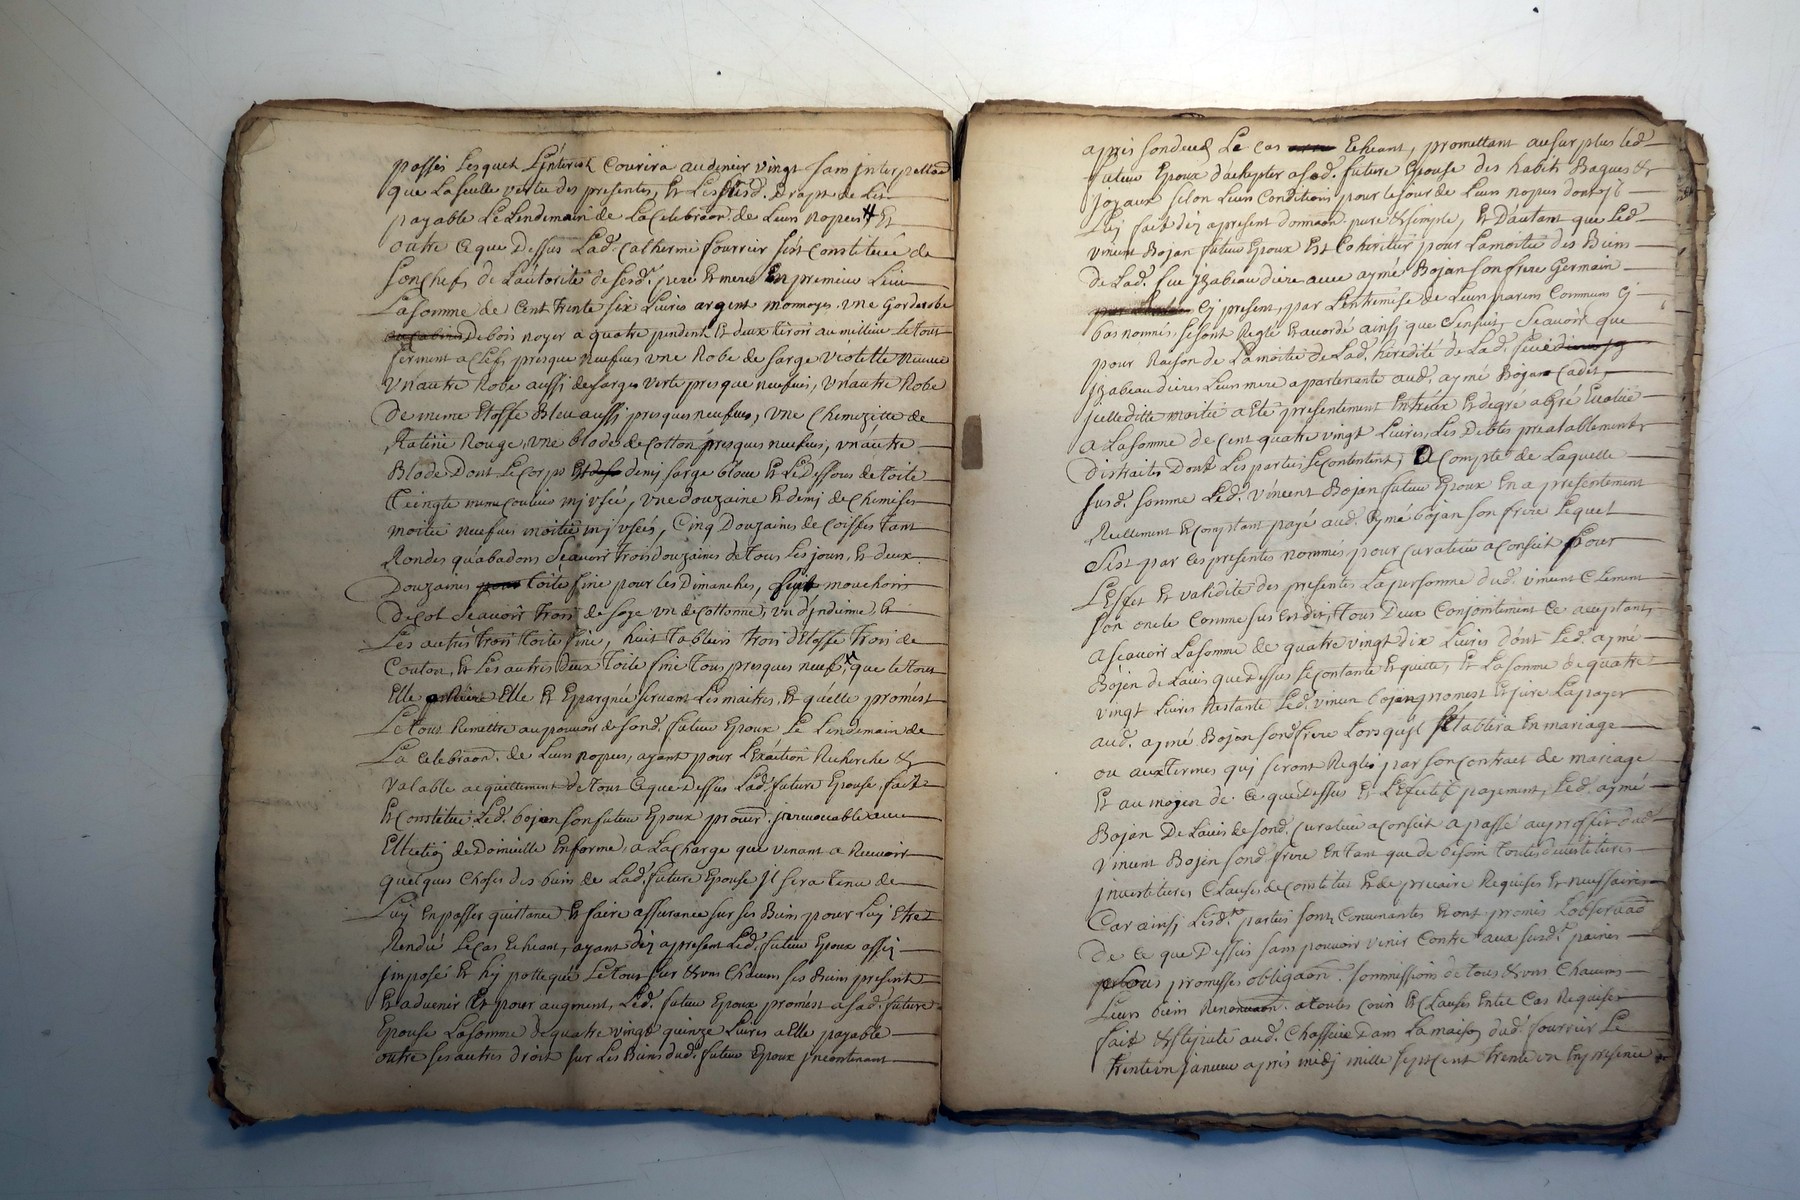 passés Lesquel L'interest Courira au denier vingt sans interpellaon
que La seulle vertu des presentes, Et Les susd. drapt de Lin
payable Le Lendemain de La Celebraon. de Leurs nopces # Et
outre Ce que Dessus Lad. Catherine fourrier s'est Constituée de
Son Chefs de L'autorité de sesd. pere Et mere En premieur Lieu
La somme de Cent trente six Livres argent monnoyes une Gorderobe
De bois noyer a quatre pendent Et deux tiroir au millieu Le tout
ferment a Clef, presque neufve une Robe de sarge violette neuve
Un autre Robe aussi de sarge verte presque neufve, un autre Robe
De meme Etoffe Bleu aussi presques neufve, une Chemizette de
Ratine Rouge, une blode de Cotton presques neufve, un autre
Blode Dont Le Corps Et demi sarge bleue Et Le Dessous de toile
treingte meme Couleur mj usée, une douzaine Et demj de Chemises
moitié neufves moitié mj usées, Cinq Douzaines de Coiffes tant
Rondes qu'abadons Sçeavoir trois douzaines de tous Les jours, Et deux
Douzaines toile fine pour Les Dimanches, huit mouchoirs
De Col Sçeavoir trois de soye un de Cottonne, un d'jndienne Et
Les autres trois toile fine, huit tabliers trois d'Etoffe trois de
Couton, Et Les autres deux toile fine tous presques neufs, que Le tout
Elle Elle Et Epargnée servant Les maitres, Et quelle promest
Le tout Remettre au pouvoir de sond. futeur Epoux Le Lendemain de
La Celebraon. de Leurs nopces, ayant pour L'Exaction Recherche &
Valable acquittement de tout Ce que Dessus Lad. future Epouse, fait
Et Constitué Led. bojon son futeur Epoux procur. jrrevocable avec
Ellection de Domicille En forme, a La Charge que venant a Recevoir
quelques Choses des biens de Lad. future Epouse Jl sera tenu de
Luy En passer quittance Et faire assurance sur ses Biens pour Luy Etre
Rendue Le Cas Echeant, ayant des apresent Led. futeur Epoux assis
jmposé Et hypottequé Le tout sur &uns Chacuns ses Biens present
Et advenir Et pour augment, Led. futeur Epoux promest a sad. future
Epouse La somme de quatre vingt quinze Livres a Elle payable
outre ses autres droit sur Les Biens dud. futeur Epoux jncontinant
apres son decez Le Cas Echeant, promettant au surplus Led.
futeur Epoux d'achepter a sad. future Epouse des habits Bagues &
Joyaux selon Leurs Conditions pour Le jour de Leurs nopces dont jl
Luy fait des apresent donnaon. pure & simple, Et D'autant que Led.
vincent Bojan futeur Epoux Est Coheritier pour La moitié des Biens
De Lad. feue jzabeau diere avec aymé Bojan son frere Germain
Cy present, par L'entremise de Leurs parens Communs Cj
bas nommés, se sont Regle Et acordé ainsi que S'ensuit, Sçeavoir que
pour Raison de La moitié de Lad. heredité de Lad. feue
jzabeau dieres Leur mere apartenante aud. aymé Bojan Cadet,
jcelle ditte moitié a Eté presentement Entreux Et de gré a gré Evaluée
A La somme de Cent quatre vingt Livres, Les Debtes prealablement
Distraites Dont Les parties se Contentent, A Compte de Laquelle
susd. somme Led. vincent Bojan futeur Epoux En a presentement
Reellement Et Comptant payé aud. Aymé bojan son frere Lequel
S'est par Ces presentes nommés pour Curateur a Conseit Pour
L'Effet Et validité des presentes La personne dud. vincent Clement
son oncle Comme sus Est dit, tous Deux Conjointement Ce aceptant,
A Sçeavoir La somme de quatre vingt dix Livres dont Led. aymé
Bojon de L'avis que Dessus se Contante Et quitte, Et La somme de quatre
vingt Livres Restante Led. vincen bojan promest Et jure La payer
aud. aymé Bojon sond. frere Lorsqu'jl s'Etablira En mariage
ou aux termes qui seront Regles par son Contract de mariage
Et au moyen de Ce que Dessus Et L'Efectif payement, Led. aymé
Bojan De L'avis de sond. Curateur a Conseit a passé au proffit dud.
vincent Bojon sond. frere En tant que de besoin toutes devestitures
Jnvestitures Clauses de Constitut Et de precaire Requises Et necessaires
Car ainsj Lesd. parties sont Convenantes Et ont promis L'observaon
De Ce que Dessus sans pouvoir venir Contre aux susd. paines
promesses obligaon. sommissions de tous &uns Chacuns
Leurs biens Renonciaon. a toutes Cours Et Clauses En tel Cas Requises
fait & stipulé aud. Chasseux Dans La maison dud. fourrier Le
trente un janvier apres midj mille sept cent trente un En presence